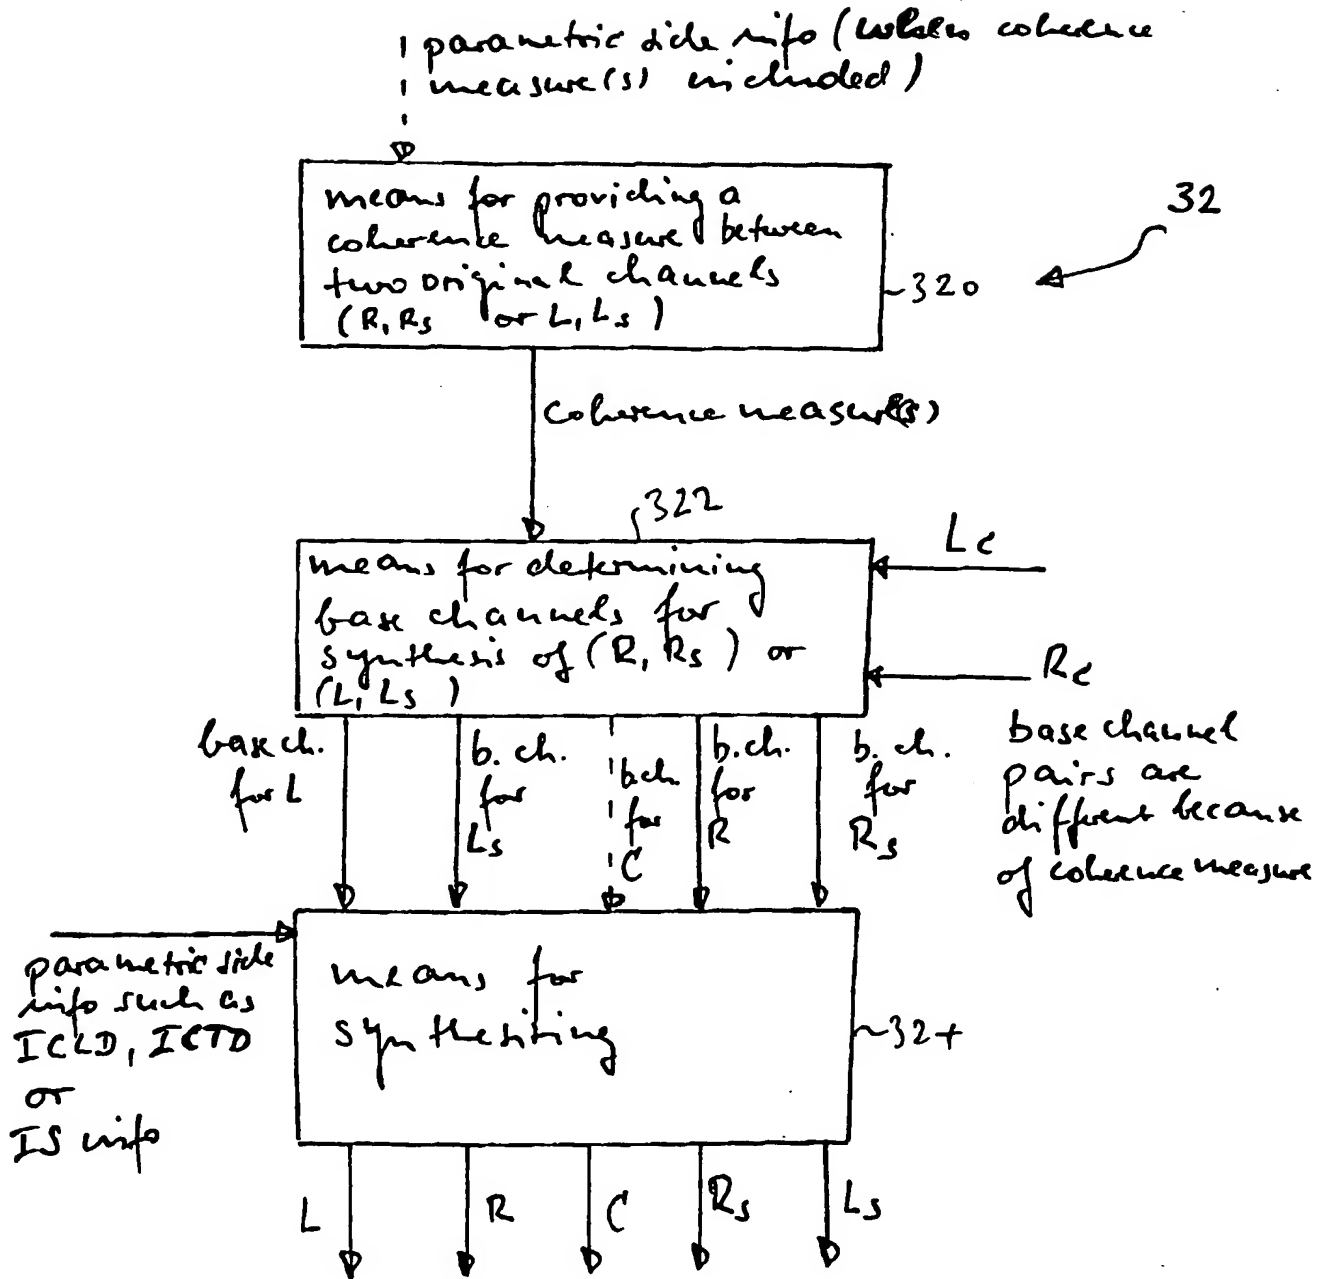 parametric side info (when coherence
measure(s) included)
means for providing a
coherence measure between
two original channels
(R, Rs or L, Ls)
320
32
coherence measure(s)
322
means for determining
base channels for
synthesis of (R, Rs) or
(L, Ls)
Lc
Rc
base ch.
for L
b. ch.
for
Ls
b.ch.
for
C
b.ch.
for
R
b. ch.
for
Rs
base channel
pairs are
different because
of coherence measure
parametric side
info such as
ICLD, ICTD
or
IS info
means for
synthesizing
324
L
R
C
Rs
Ls